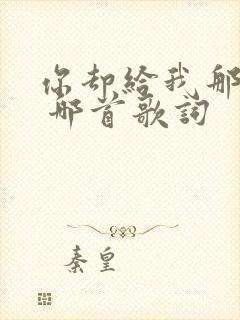 你却给我那
那首歌詞
秦皇